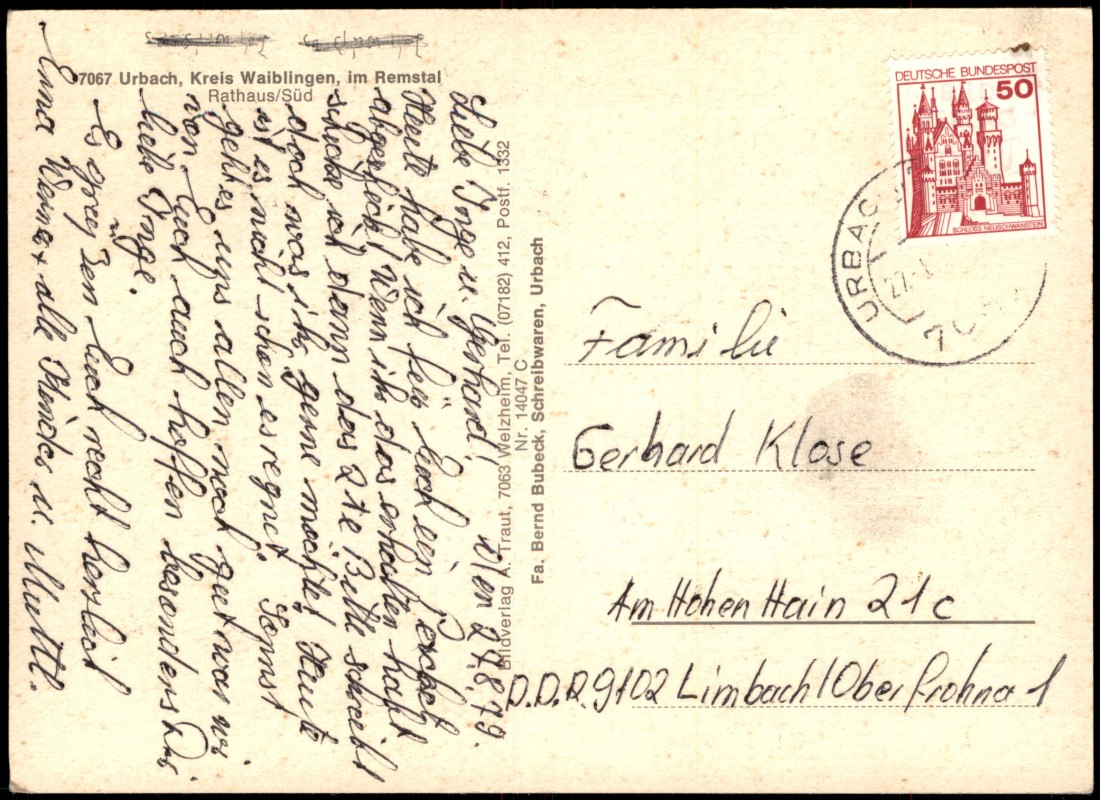 7067 Urbach, Kreis Waiblingen, im Remstal
Rathaus/Süd
Bildverlag A. Traut, 7063 Welzheim, Tel. (07182) 412, Postf. 1332
Nr. 14047 C
Fa. Bernd Bubeck, Schreibwaren, Urbach
DEUTSCHE BUNDESPOST
50
SCHLOSS NEUSCHWANSTEIN
URBACH
27.
Liebe Inge u. Gerhard! den 27.8.79.
Heute habe ich Euch ein Packet
abgeschickt Wenn ihr das erhalten habt
schicke ich dann das 2te Bitte schreibt
doch was ihr gerne möchtet Heute
ist es nicht schön es regnet Sonnst
geht es uns allen noch gut was wir
von Euch auch hoffen besonders Dir
liebe Inge.
Es grüßen Euch recht herzlich
Erna Werner alle Kinder u. Mutti.
Familie
Gerhard Klose
Am Hohen Hain 21c
D.D.R. 9102 Limbach/Oberfrohna 1